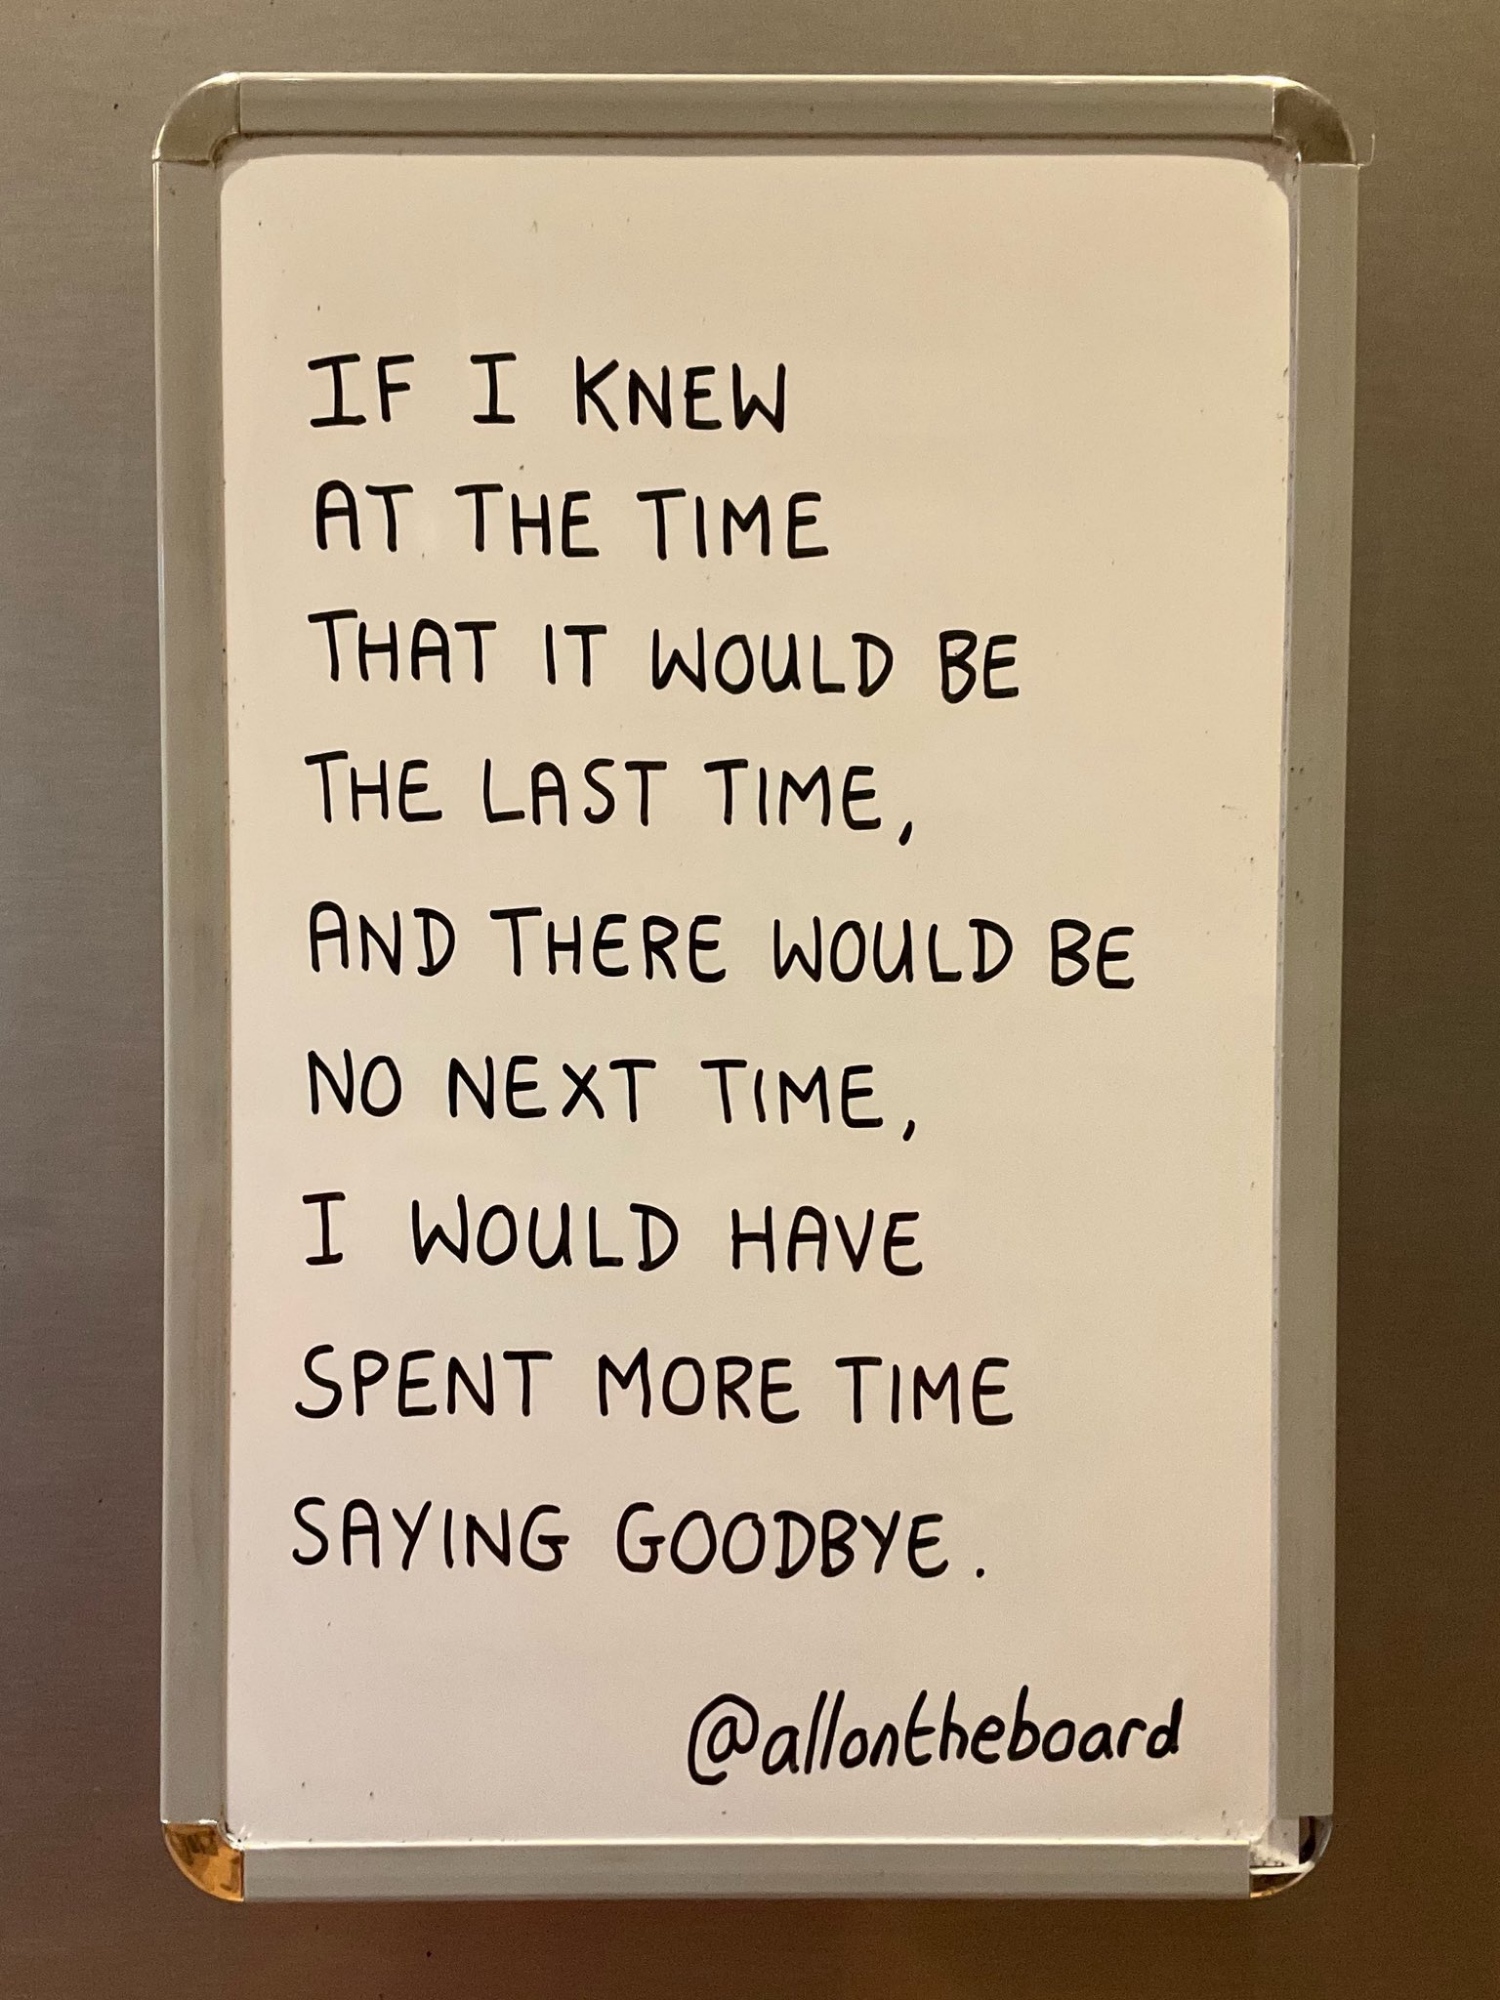 IF I KNEW
AT THE TIME
THAT IT WOULD BE
THE LAST TIME,
AND THERE WOULD BE
NO NEXT TIME,
I WOULD HAVE
SPENT MORE TIME
SAYING GOODBYE.
@allontheboard